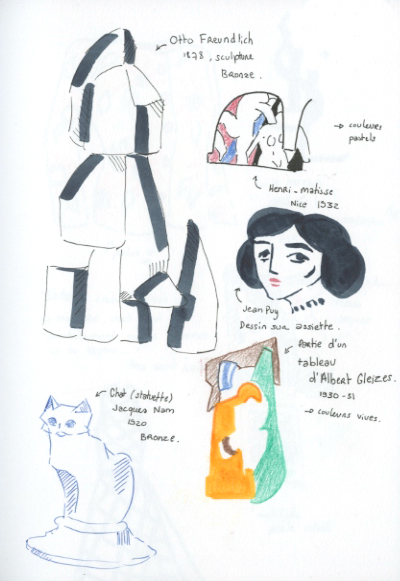 Otto Freundlich
1878, sculpture
Bronze.
→ couleurs
pastels
Henri-matisse
Nice 1932
Jean Puy
Dessin sur assiette.
Partie d'un
tableau
d'Albert Gleizes.
1930-31
→ couleurs vives.
Chat (statuette)
Jacques Nam
1920
Bronze.